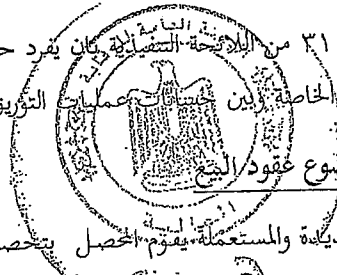 ٣١ من اللائحة التنفيذية بأن يفرد ح
الخاصة وبين حسابات عمليات التوريق
ضوع عقود البيع
والمستعملة يقوم المحصل بتحص